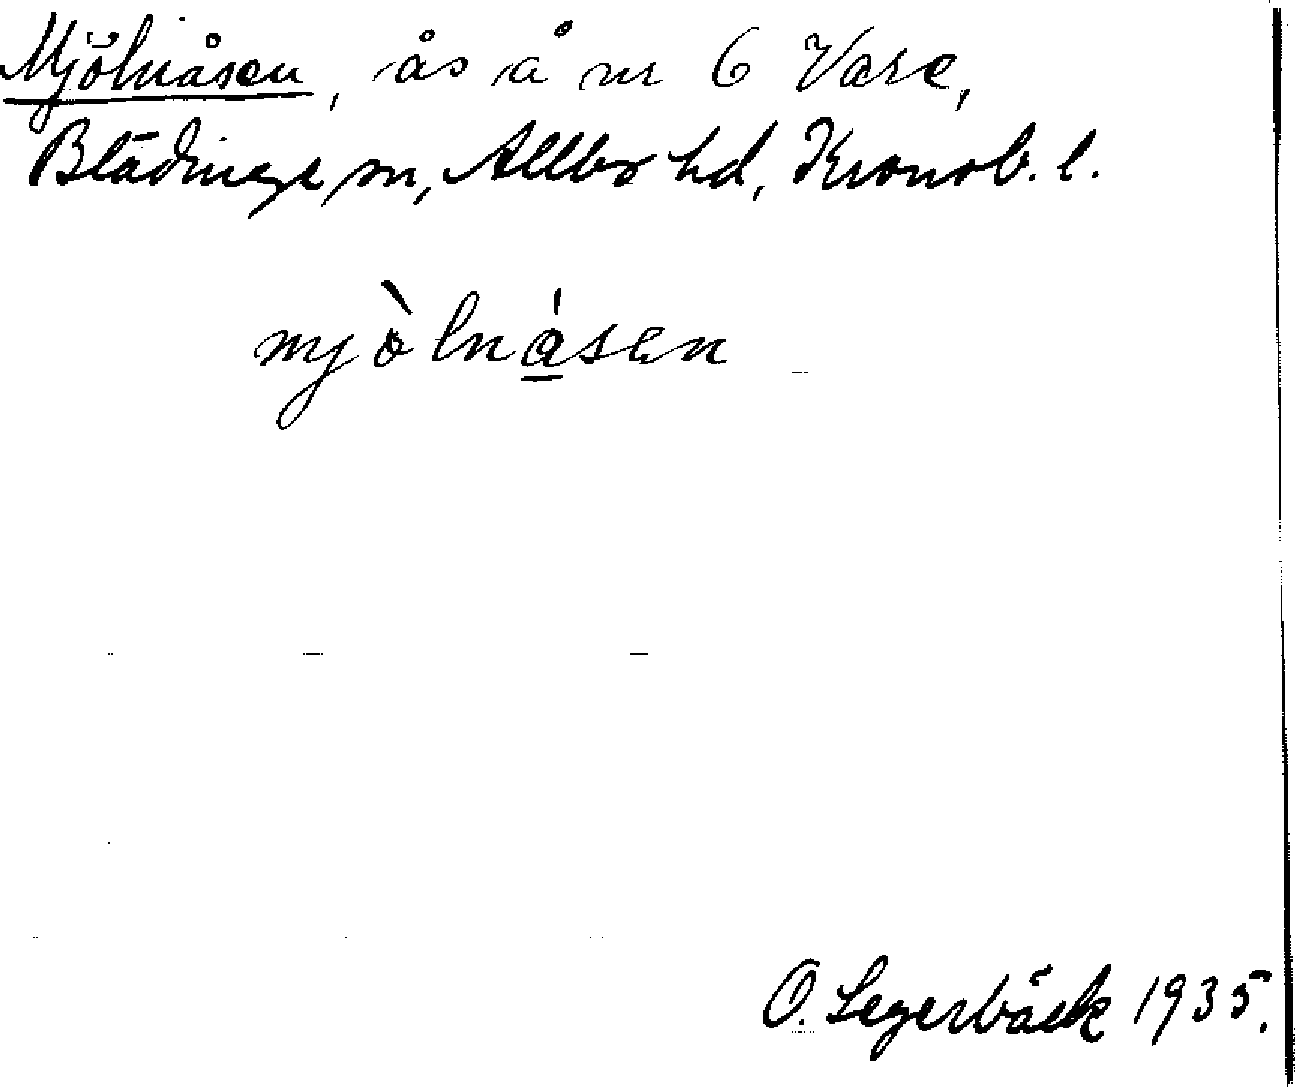 Mjölnåsen, ås å nr 6 Vare,
Blädinge sn, Allbo hd, Kronob. l.
mjòlnåsen
O. Segerbäck 1935.